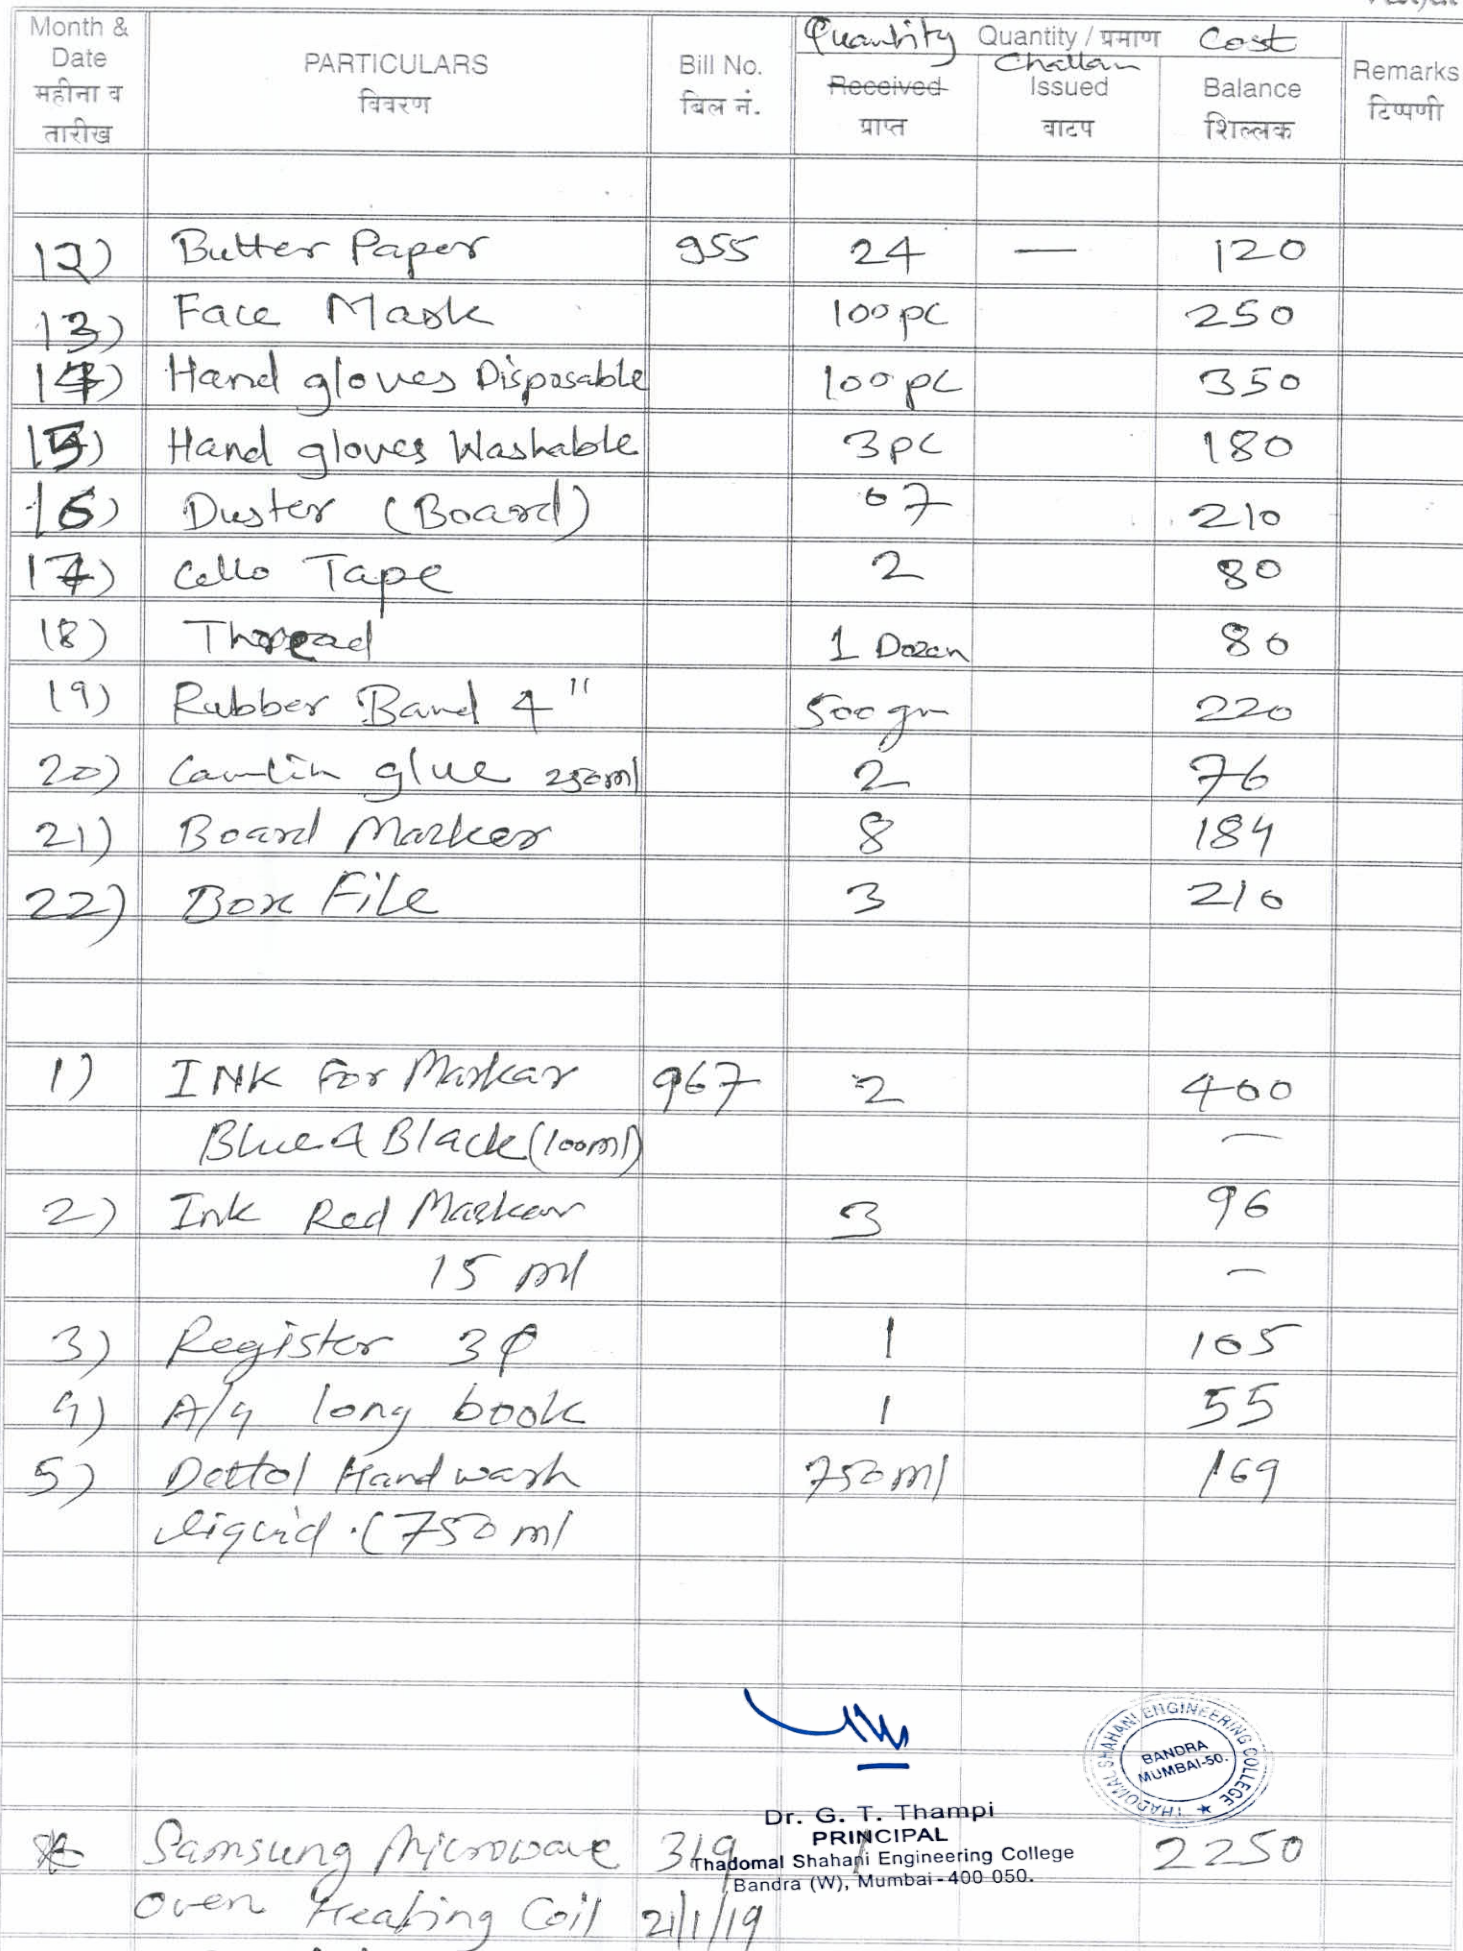 Month & Date महीना व तारीख | PARTICULARS विवरण | Bill No. बिल नं. | Quantity Received प्राप्त | Quantity / प्रमाण Challan Issued वाटप | Cost Balance शिल्लक | Remarks टिप्पणी
12) Butter Paper 955 24 — 120
13) Face Mask 100 pc 250
14) Hand gloves Disposable 100 pc 350
15) Hand gloves Washable 3 pc 180
16) Duster (Board) 07 210
17) Cello Tape 2 80
18) Thread 1 Dozen 80
19) Rubber Band 4" 500 gm 220
20) Camlin glue 250ml 2 76
21) Board Marker 8 184
22) Box File 3 210
1) INK For Markar 967 2 400
Blue & Black (100ml) —
2) Ink Red Markar 3 96
15 ml —
3) Register 3 1 105
4) A/4 long book 1 55
5) Dettol Handwash 750ml 169
liquid. (750 ml
THADOMAL SHAHANI ENGINEERING COLLEGE ★
BANDRA
MUMBAI-50.
Dr. G. T. Thampi
PRINCIPAL
Thadomal Shahani Engineering College
Bandra (W), Mumbai - 400 050.
Samsung Microwave 319 1 2250
Oven Heating Coil 21/1/19